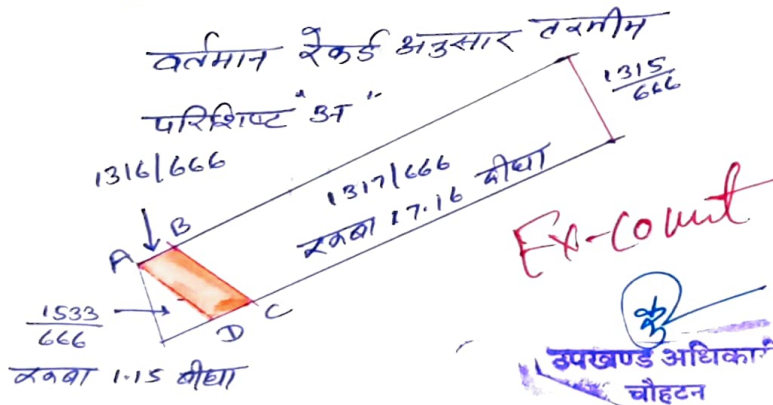 वर्तमान रेकर्ड अनुसार तरमीम
परिशिष्ट "अ"
1315/666
1316/666
1317/666
रकबा 17.16 बीघा
A B
Ex-
1533/666
D C
रकबा 1.15 बीघा
उपखण्ड अधिकारी
चौहटन